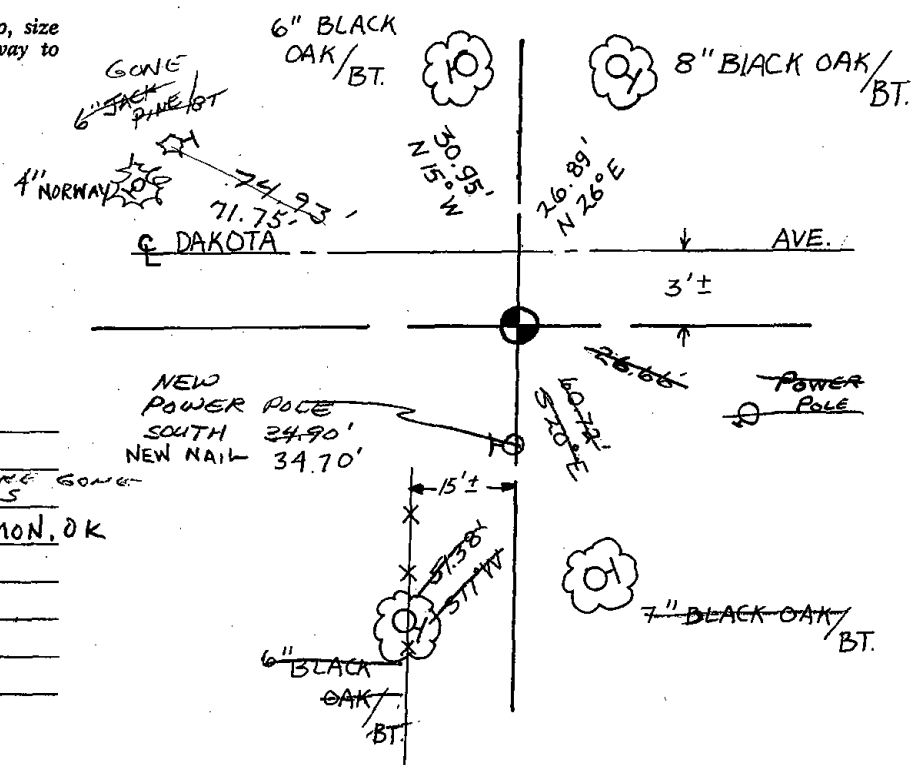 o, size
way to
6" BLACK
OAK/
BT.
8" BLACK OAK/
BT.
GONE
6" JACK
PINE/BT
4" NORWAY
74.93'
71.75'
30.95'
N 15° W
26.89'
N 26° E
℄ DAKOTA AVE.
3'±
26.66'
POWER
POLE
NEW
POWER POLE
SOUTH 34.90'
NEW NAIL 34.70'
60.72'
S 20° E
15'±
GONE
S
MON. OK
51.38'
S 11° W
7" BLACK OAK/
BT.
6" BLACK
OAK/
BT.